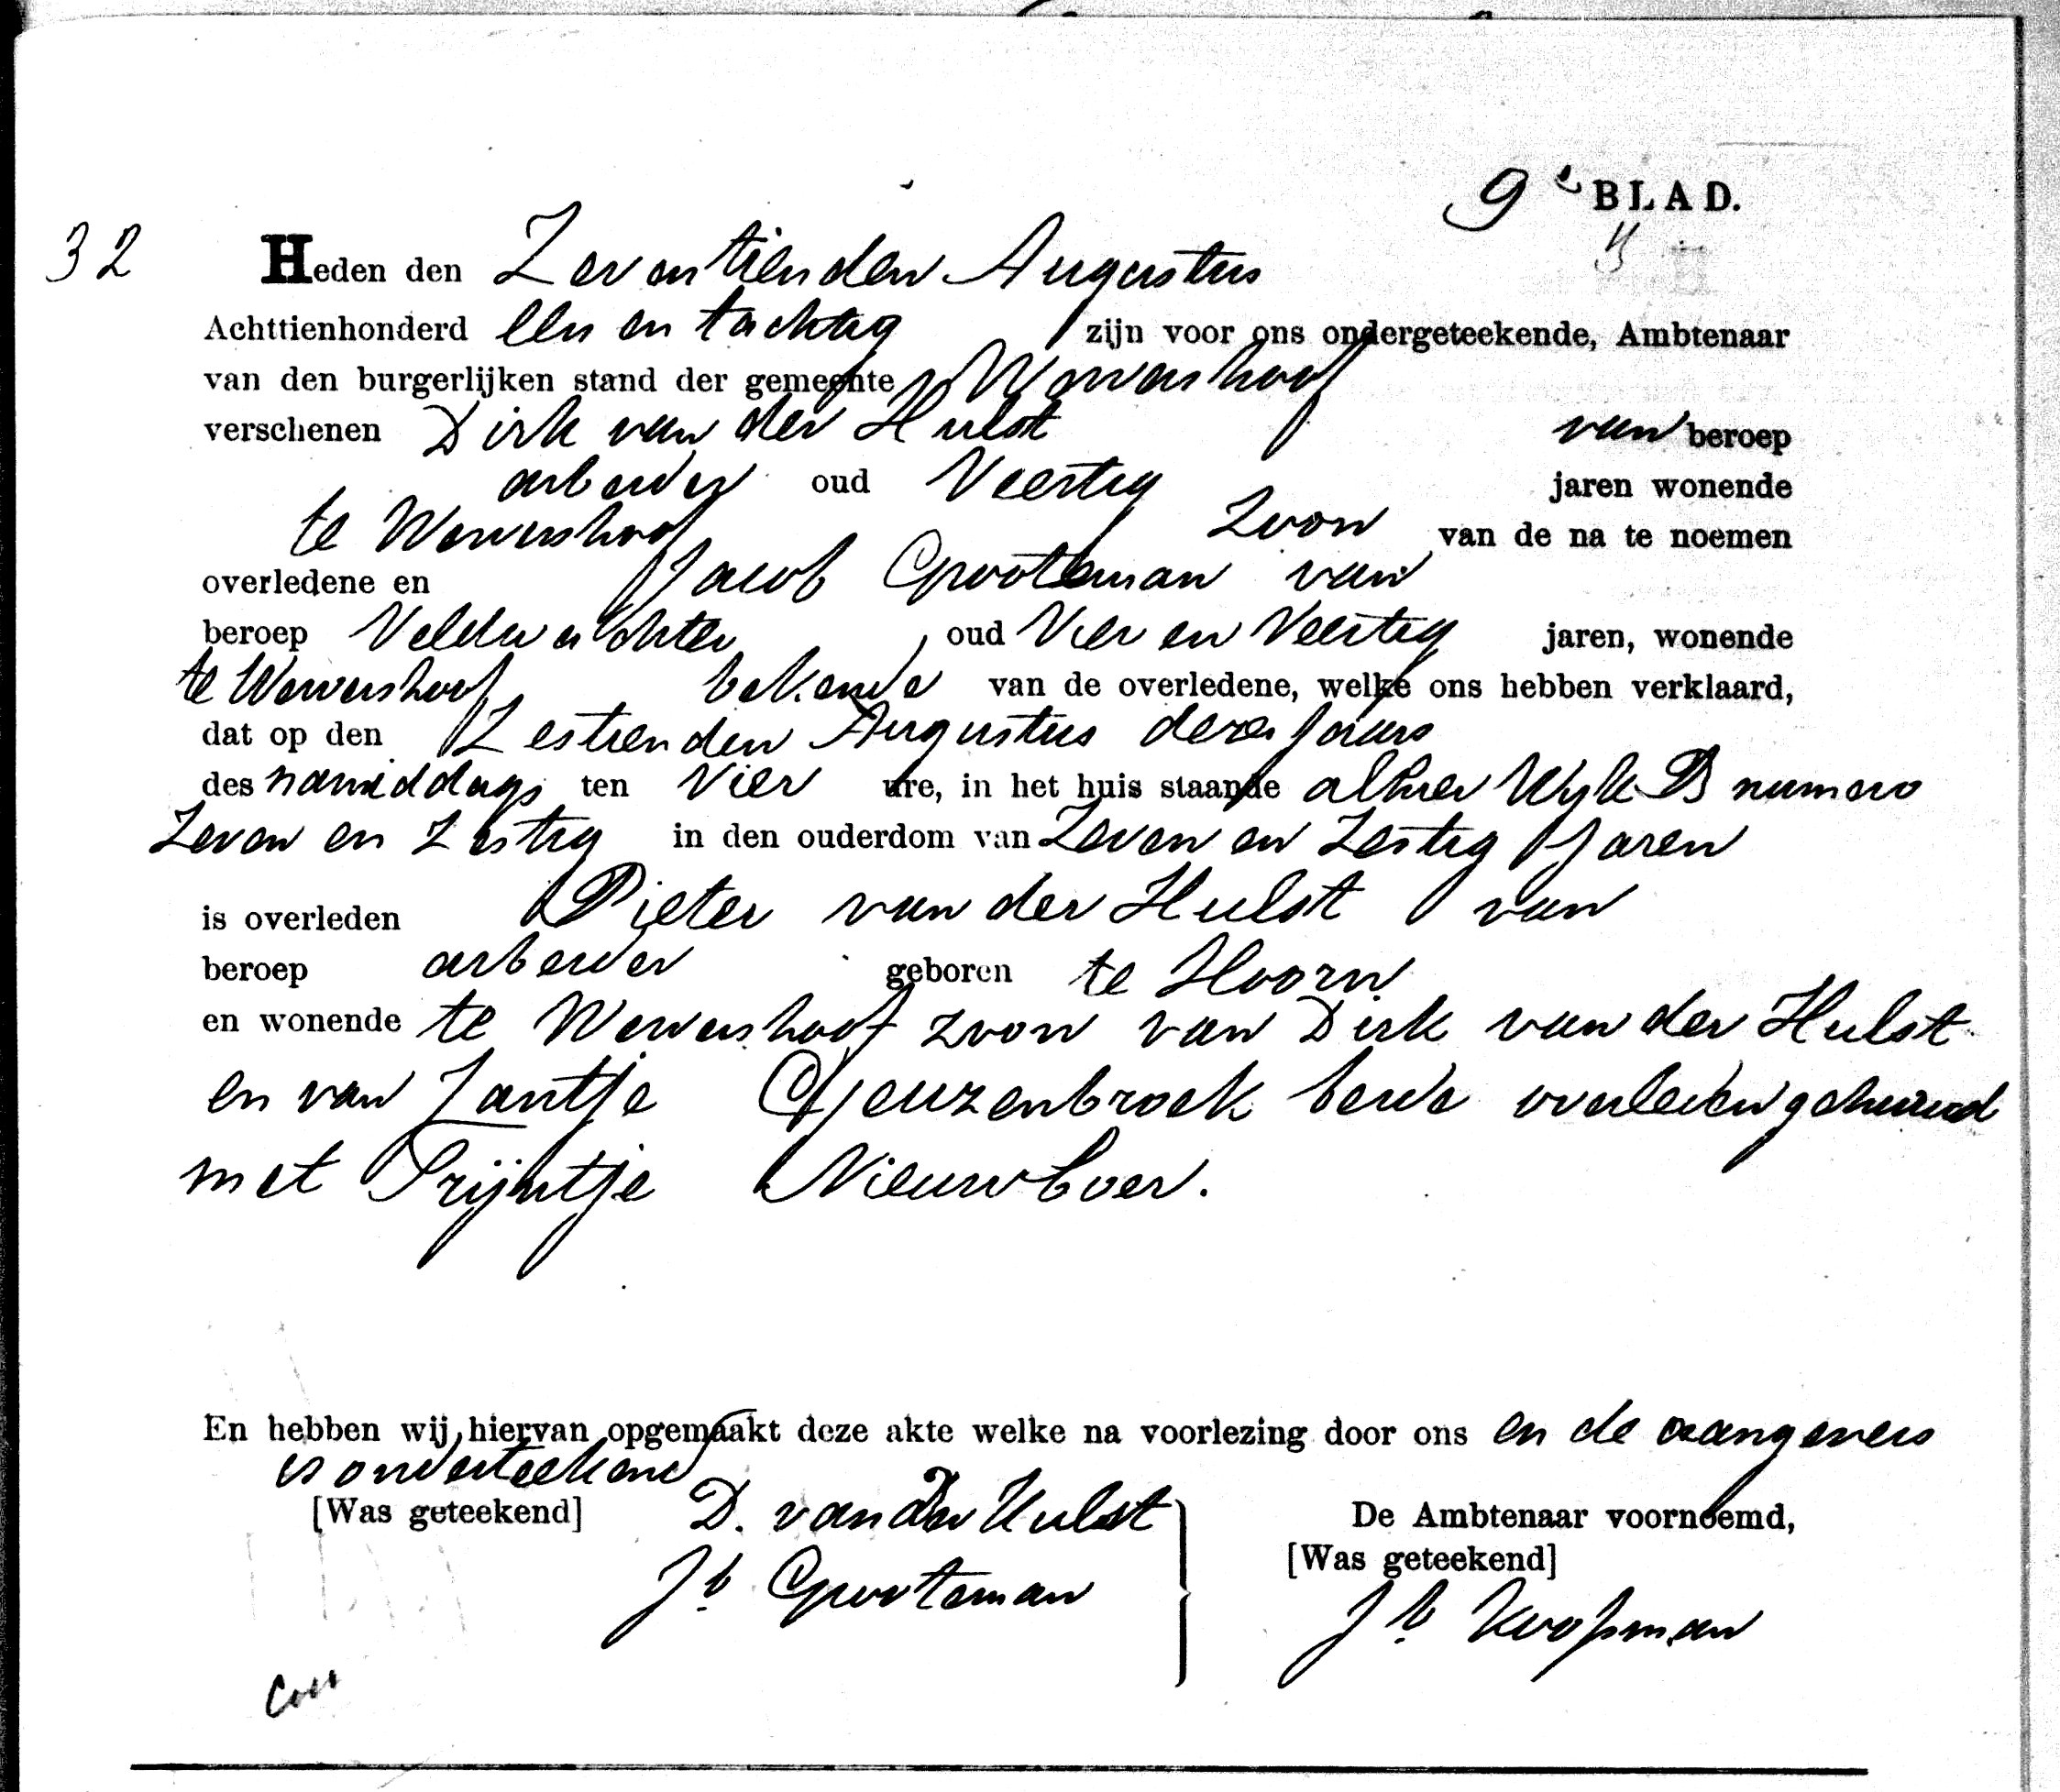 9e BLAD.
32 Heden den Zeventienden Augustus
Achttienhonderd een en tachtig zijn voor ons ondergeteekende, Ambtenaar
van den burgerlijken stand der gemeente Wervershoof
verschenen Dirk van der Hulst van beroep
arbeider oud Veertig jaren wonende
te Wervershoof Zoon van de na te noemen
overledene en Jacob Grooteman van
beroep Veldwachter, oud Vier en Veertig jaren, wonende
te Wervershoof bekende van de overledene, welke ons hebben verklaard,
dat op den Zestienden Augustus dezes jaars
des namiddags ten Vier ure, in het huis staande alhier Wijk B numero
Zeven en Zestig in den ouderdom van Zeven en Zestig Jaren
is overleden Pieter van der Hulst van
beroep arbeider geboren te Hoorn
en wonende te Wervershoof zoon van Dirk van der Hulst
en van Jantje Geuzenbroek beide overleden gehuwd
met Trijntje Nieuwboer.
En hebben wij hiervan opgemaakt deze akte welke na voorlezing door ons en de aangevers
is onderteekend
[Was geteekend] D. van der Hulst
De Ambtenaar voornoemd,
Jb. Grooteman
[Was geteekend]
Jb. Koopman